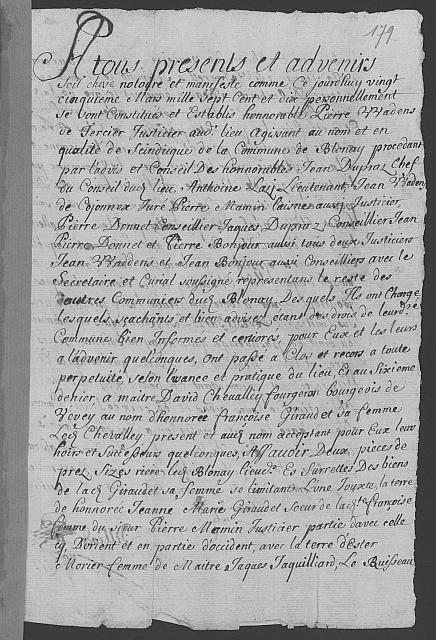 179
A tous presents et advenirs
Soit chose notoire et manifeste comme Ce jourdhuy vingt
cinquieme Mars mille Sept Cent et dix personnellement
Se sont Constitués et Establis honnorable Pierre Wadens
de Tercier Justicier aud. lieu Agissant au nom et en
qualité de Scindique de la Commune de Blonay procedant
par l'advis et Conseil Des honnorables Jean Dupraz Chef
du Conseil dud. lieu, Anthoine Lieutenant, Jean Wadens
de Cojonnex Juré Pierre Mamin laisné aussy Justicier,
Pierre Bonnet Conseillier Jaques Dupraz Conseillier Jean
Pierre Bonnet et Pierre Bonjour aussi tous deux Justiciers
Jean Wadens et Jean Bonjour aussi Conseilliers avec le
Secretaire et Curial soussigné representans le reste des
autres Communiers dud. Blonay, Desquels Ils ont Charge
lesquels Scachants et bien advises etant des droits de leurd.
Commune bien Informes et certiores, pour Eux et les leurs
a l'advenir quelconques, ont passé a Clos et recors a toute
perpetuité, selon l'usance et pratique du lieu, Et au Sixieme
denier, a maitre David Chevalley fourgeron bourgeois de
Vevey au nom d'honnorée françoise Giraud et sa femme
Led. Chevalley present et aud. nom acceptant pour Eux leur
hoirs et Successeurs quelconques, Assauoir Deux, pieces de
prez Sizes riere led. Blonay lieud. Es Surrettes Des biens
de lad. Giraudet sa femme se limitant L'une Jouxte la terre
de honnorée Jeanne Marie Giraudet Soeur de lad. françoise
femme du sieur Pierre Mamin Justicier partie davec celle
cy D'orient et en partie d'occident, avec la terre d'Ester
Morier femme de Maitre Jaques Taquilliard, Le Buisseau